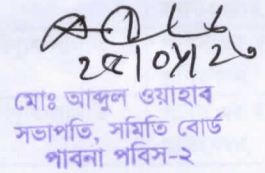 মোঃ আব্দুল ওয়াহাব
সভাপতি, সমিতি বোর্ড
পাবনা পবিস-২